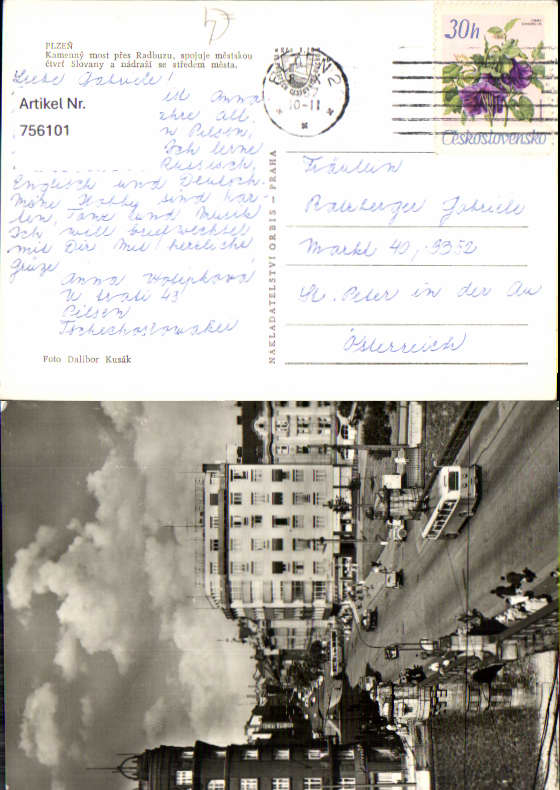 PLZEŇ
Kamenný most přes Radbuzu, spojuje městskou
čtvrť Slovany a nádraží se středem města.
Liebe Gabriele!
Artikel Nr.
756101
Anna
in Pilsen,
Ich lerne
Russisch,
Englisch und Deutsch.
Meine Hobby sind
Tanz und Musik
Ich will
mit Dir. Mit herzliche
Grüze
Anna
43
Pilsen
Tschechoslowakei
Foto Dalibor Kusák
NAKLADATELSTVÍ ORBIS – PRAHA
30h
Československo
Fräulein
Gabriele
Markt 40, 3352
St. Peter in der Au
Österreich